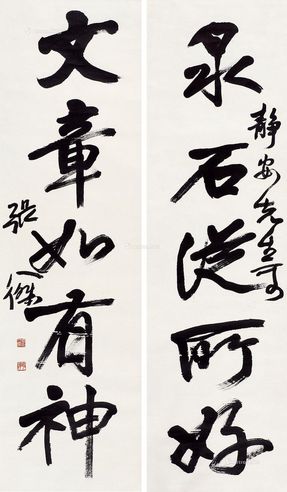 泉石從所好
靜安先生可
文章如有神
張
傑